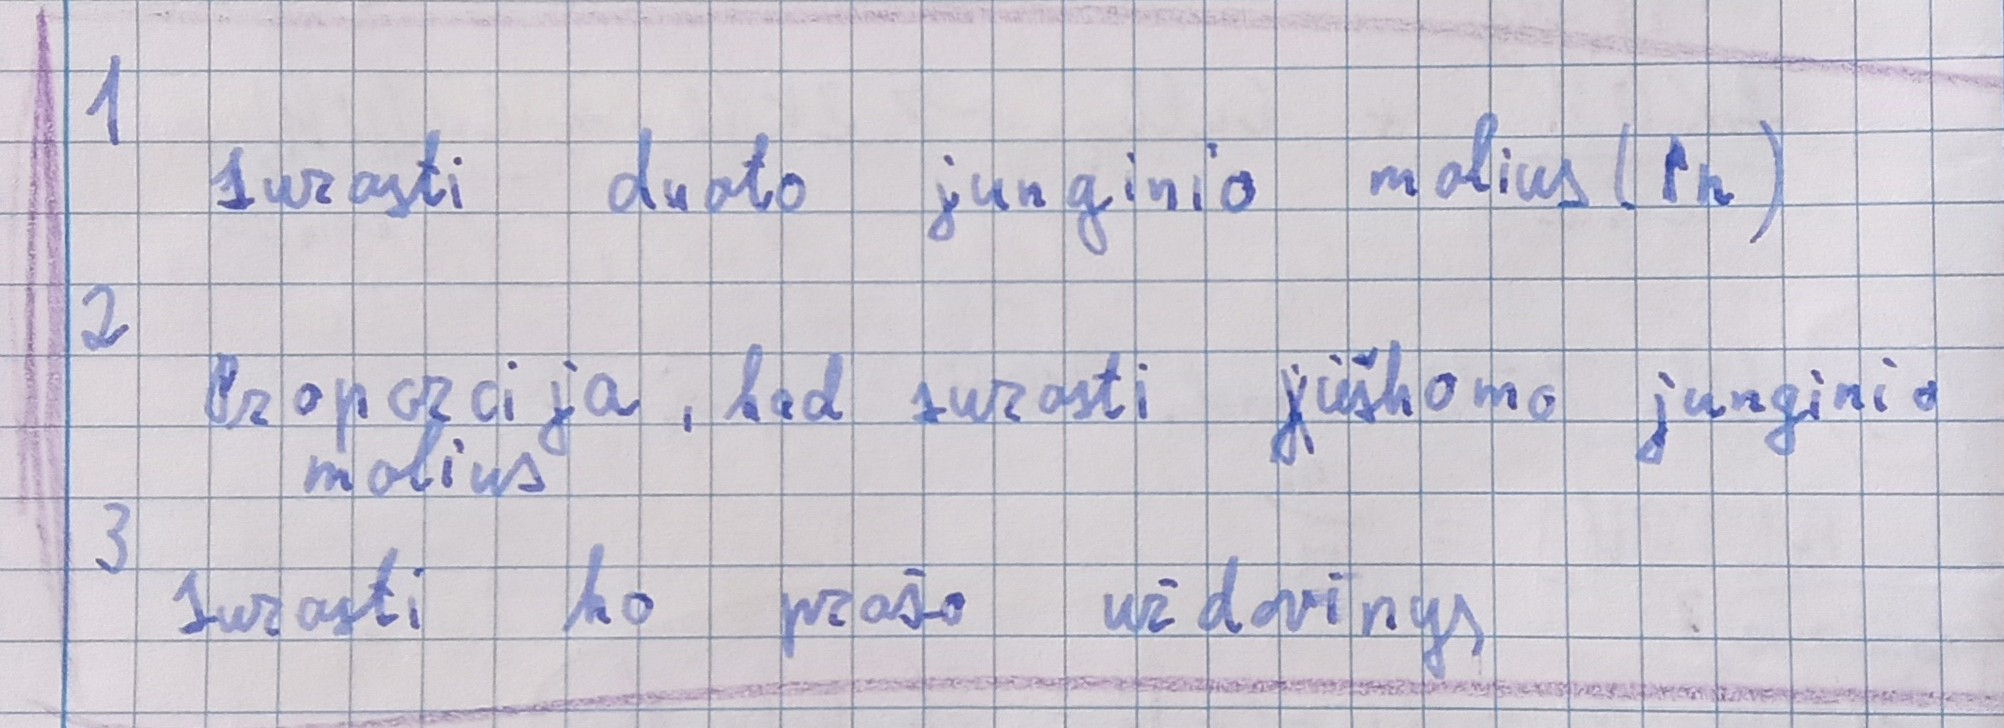 1
surasti duoto junginio molius (n)
2
Proporcija, kad surasti ješkomo junginio
molius
3
surasti ko prašo uždavinys